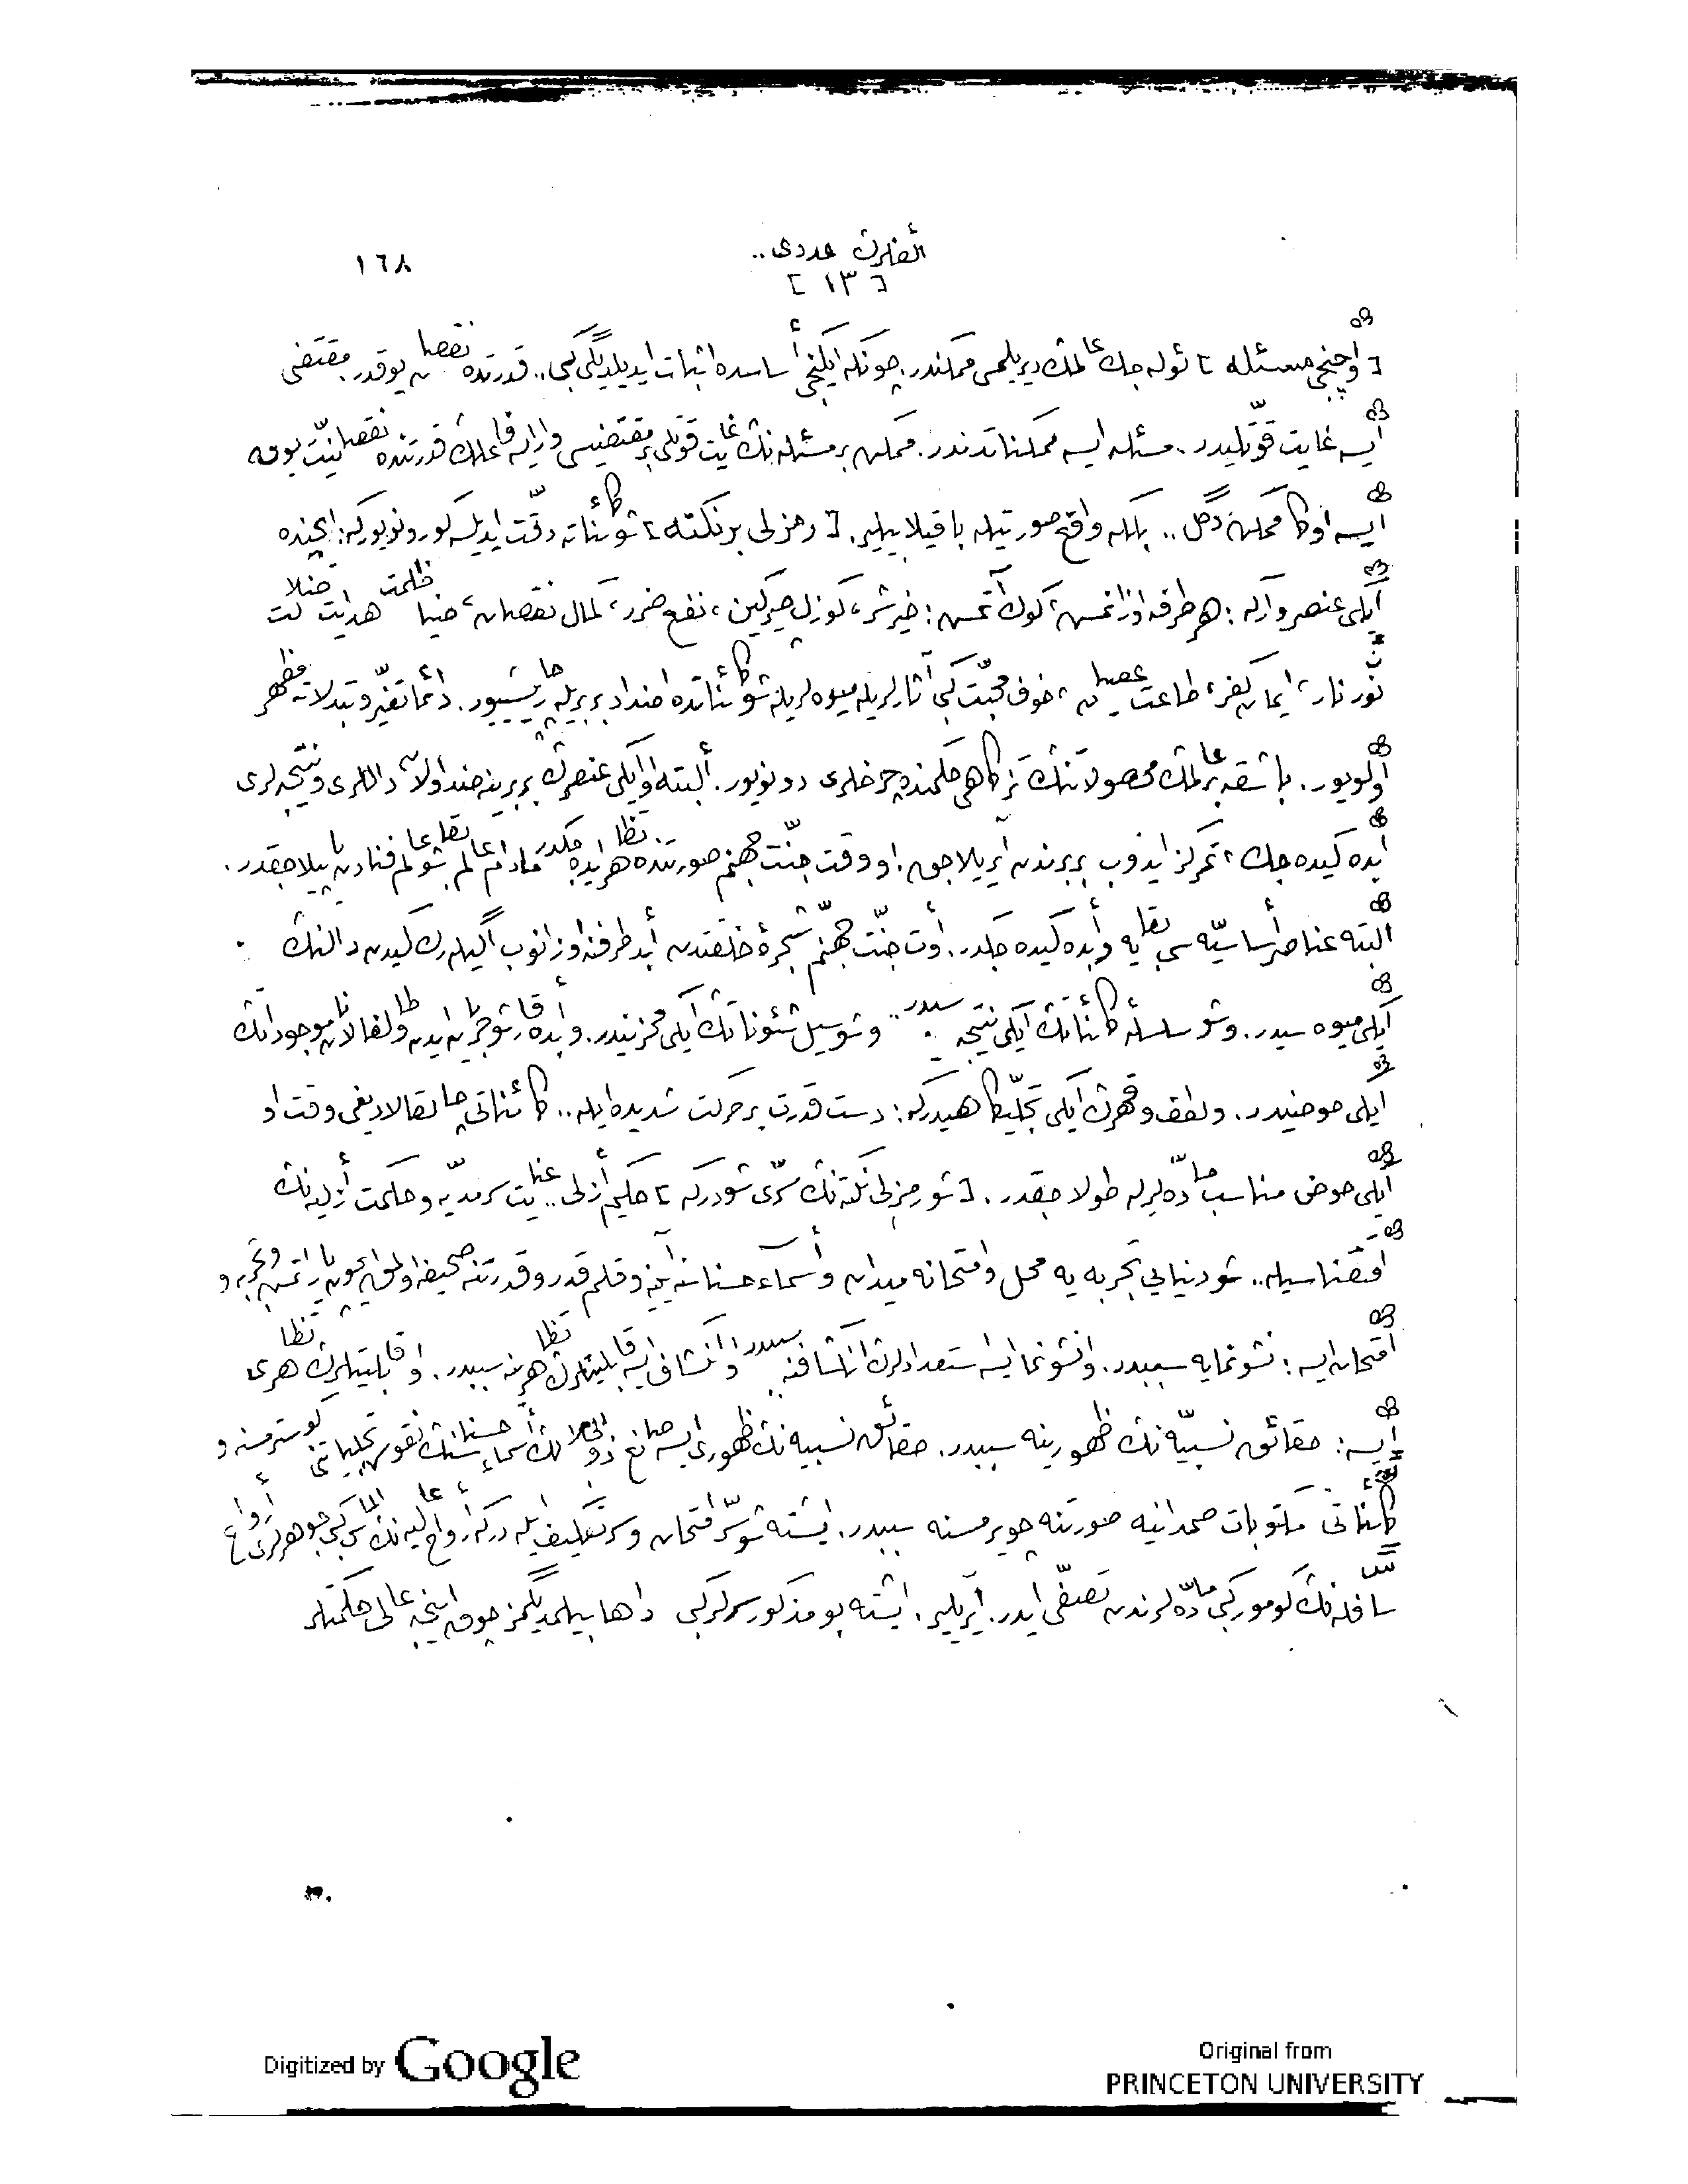 ألفلرڭ عددی.. ١٦٨
[ ١٣ ]
[ اوچنجی مسئله ] ئوله‌جك عالمڭ ديريلمسی ممكندر. چونكه ايكنجی أساسده اثبات ايديلديگی گبی.. قدرتده نقصان يوقدر. مقتضی
ايسه غايت قوّتليدر. مسئله ايسه ممكناتدندر. ممكن بر مسئله‌نڭ غايت قوتلی بر مقتضيسی وار ايسه فاعلڭ قدرتنده نقصانيّت يوق
ايسه اوڭا ممكن دگل.. بلكه واقع صورتيله باقيلابيلير. [ رمزلی بر نكته ] شو كائناته دقّت ايديلسه گورونويوركه: ايچنده
ايكی عنصر واركه: هر طرفه اوزانمش، كوك آتمش: خير شر، گوزل چيركين، نفع ضرر، كمال نقصان، ضيا ظلمت هدايت ضلالت
نور نار، ايمان كفر، طاعت عصيان، خوف محبّت گبی آثارلريله ميوه‌لريله شو كائناتده اضداد بربريله چارپيشييور. دائما تغيّر و تبدلاته مظهر
اولويور. باشقه بر عالمڭ محصولاتنڭ تزگاهی حكمنده چرخلری دونويور. ألبته او ايكی عنصرڭ بربرينه ضد اولان داللری و نتيجه‌لری
أبده گيده‌جك، تمركز ايدوب بربرندن آيريلاجق. او وقت جنّت جهنم صورتنده تظاهر ايده‌جكدر. مادام عالم بقا، شو عالم فنادن ياپيلاجقدر.
البته عناصر أساسيّه‌سی بقايه و أبده گيده‌جكدر. أوت جنّت جهنّم شجرۀ خلقتدن أبد طرفنه اوزانوب أگيله‌رك گيدن دالنڭ
ايكی ميوه‌سيدر. و شو سلسلۀ كائناتڭ ايكی نتيجه‌سيدر.. و شو سيل شئوناتڭ ايكی مخزنيدر. و أبده قارشو جريان ايدن و طالغالانان موجوداتڭ
ايكی حوضيدر. و لطف و قهرڭ ايكی تجلّيگاهيدركه: دست قدرت بر حركت شديده ايله.. كائناتی چالقالاديغی وقت او
ايكی حوض مناسب مادّه‌لرله طولاجقدر. [ شو رمزلی نكته‌نڭ سرّی شودركه ] حكيم أزلی.. عنايت سرمديّه و حكمت أزليه‌نڭ
اقتضاسيله.. شو دنيايی تجربه‌يه محل و امتحانه ميدان و أسماء حسناسنه آيينه و قلم قدر و قدرتنه صحيفه اولمق ايچون ياراتمش. و تجربه و
امتحان ايسه: نشو نمايه سببدر. و او نشو نما ايسه استعدادلرڭ انكشافنه سببدر. او انكشاف ايسه قابليتلرڭ تظاهرينه سببدر. او قابليتلرڭ تظاهری
ايسه: حقائق نسبيّه‌نڭ ظهورينه سببدر. حقائق نسبيه‌نڭ ظهوری ايسه صانع ذو الجلالڭ أسماء حسناسنڭ نقوش تجلياتنی گوسترمسنه و
كائناتی مكتوبات صمدانيه صورتنه چويرمسنه سببدر. ايشته شو سرّ امتحان و سرّ تكليف ايله دركه: أرواح عاليه‌نڭ الماس گبی جوهرلری أرواح
سافله‌نڭ كومور گبی مادّه‌لرندن تصفّی ايدر. آيريلير. ايشته بو مذكور سرلر گبی داها بيلمديگمز چوق اينجه عالی حكمتلر
Digitized by Google
Original from
PRINCETON UNIVERSITY